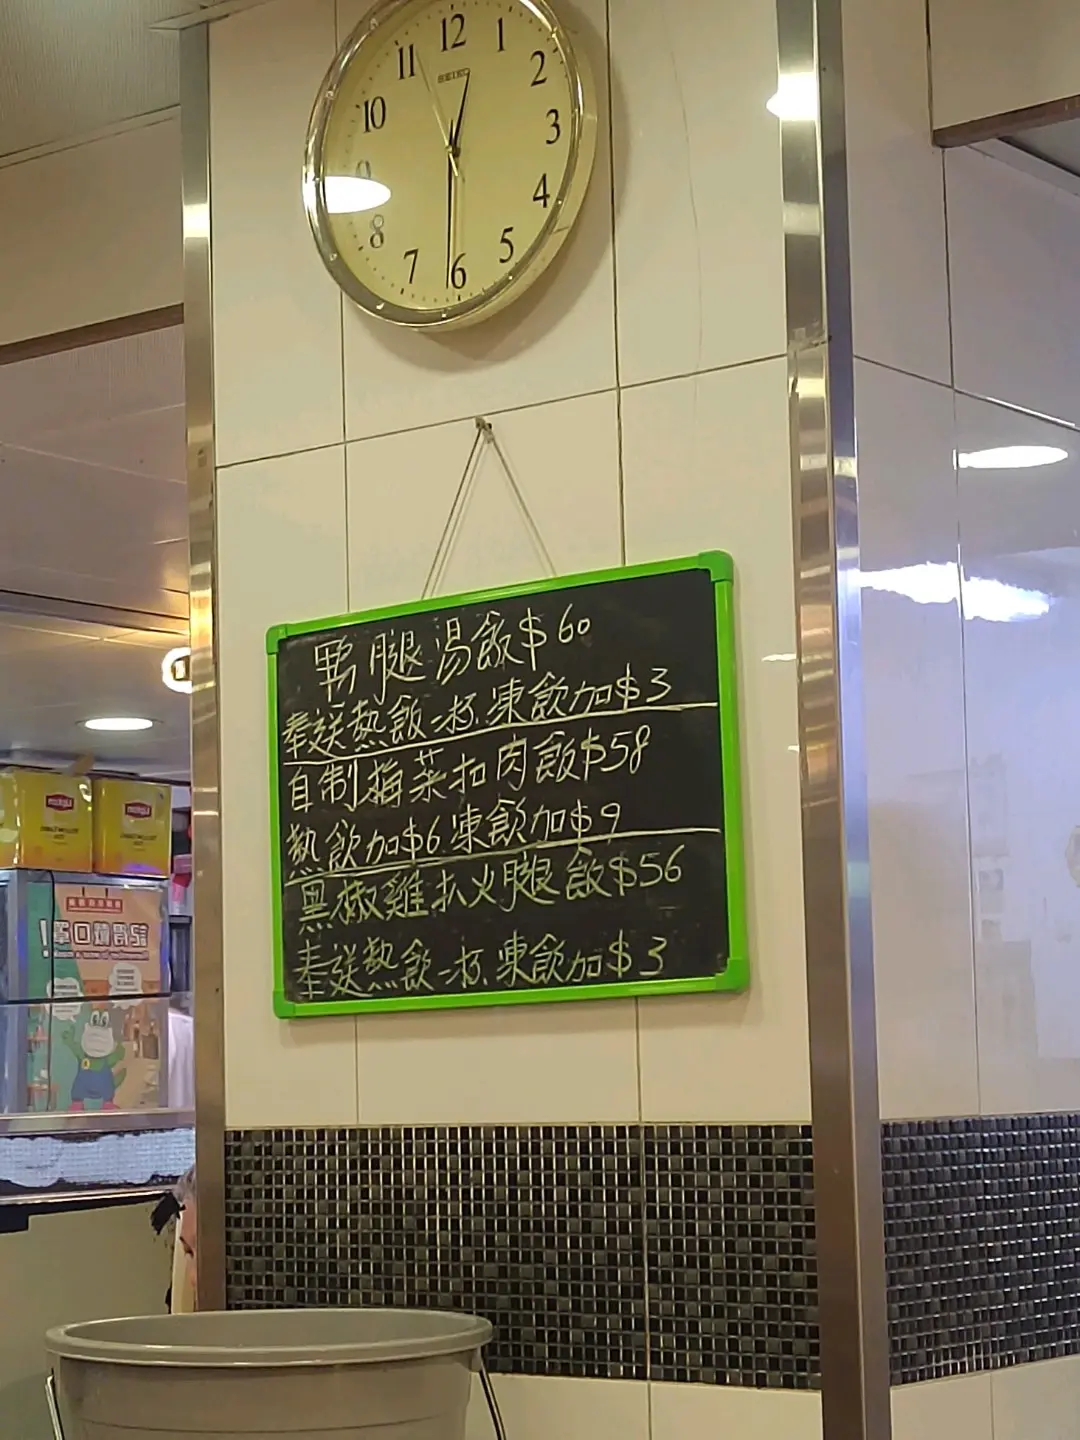 11 12 1
10 2
3
8 4
7 6 5
SEIKO
鴨腿湯飯$60
奉送熱飯一杯.凍飲加$3
自制梅菜扣肉飯$58
熱飲加$6凍飲加$9
黑椒雞扒火腿飯$56
奉送熱飲一杯.凍飲加$3